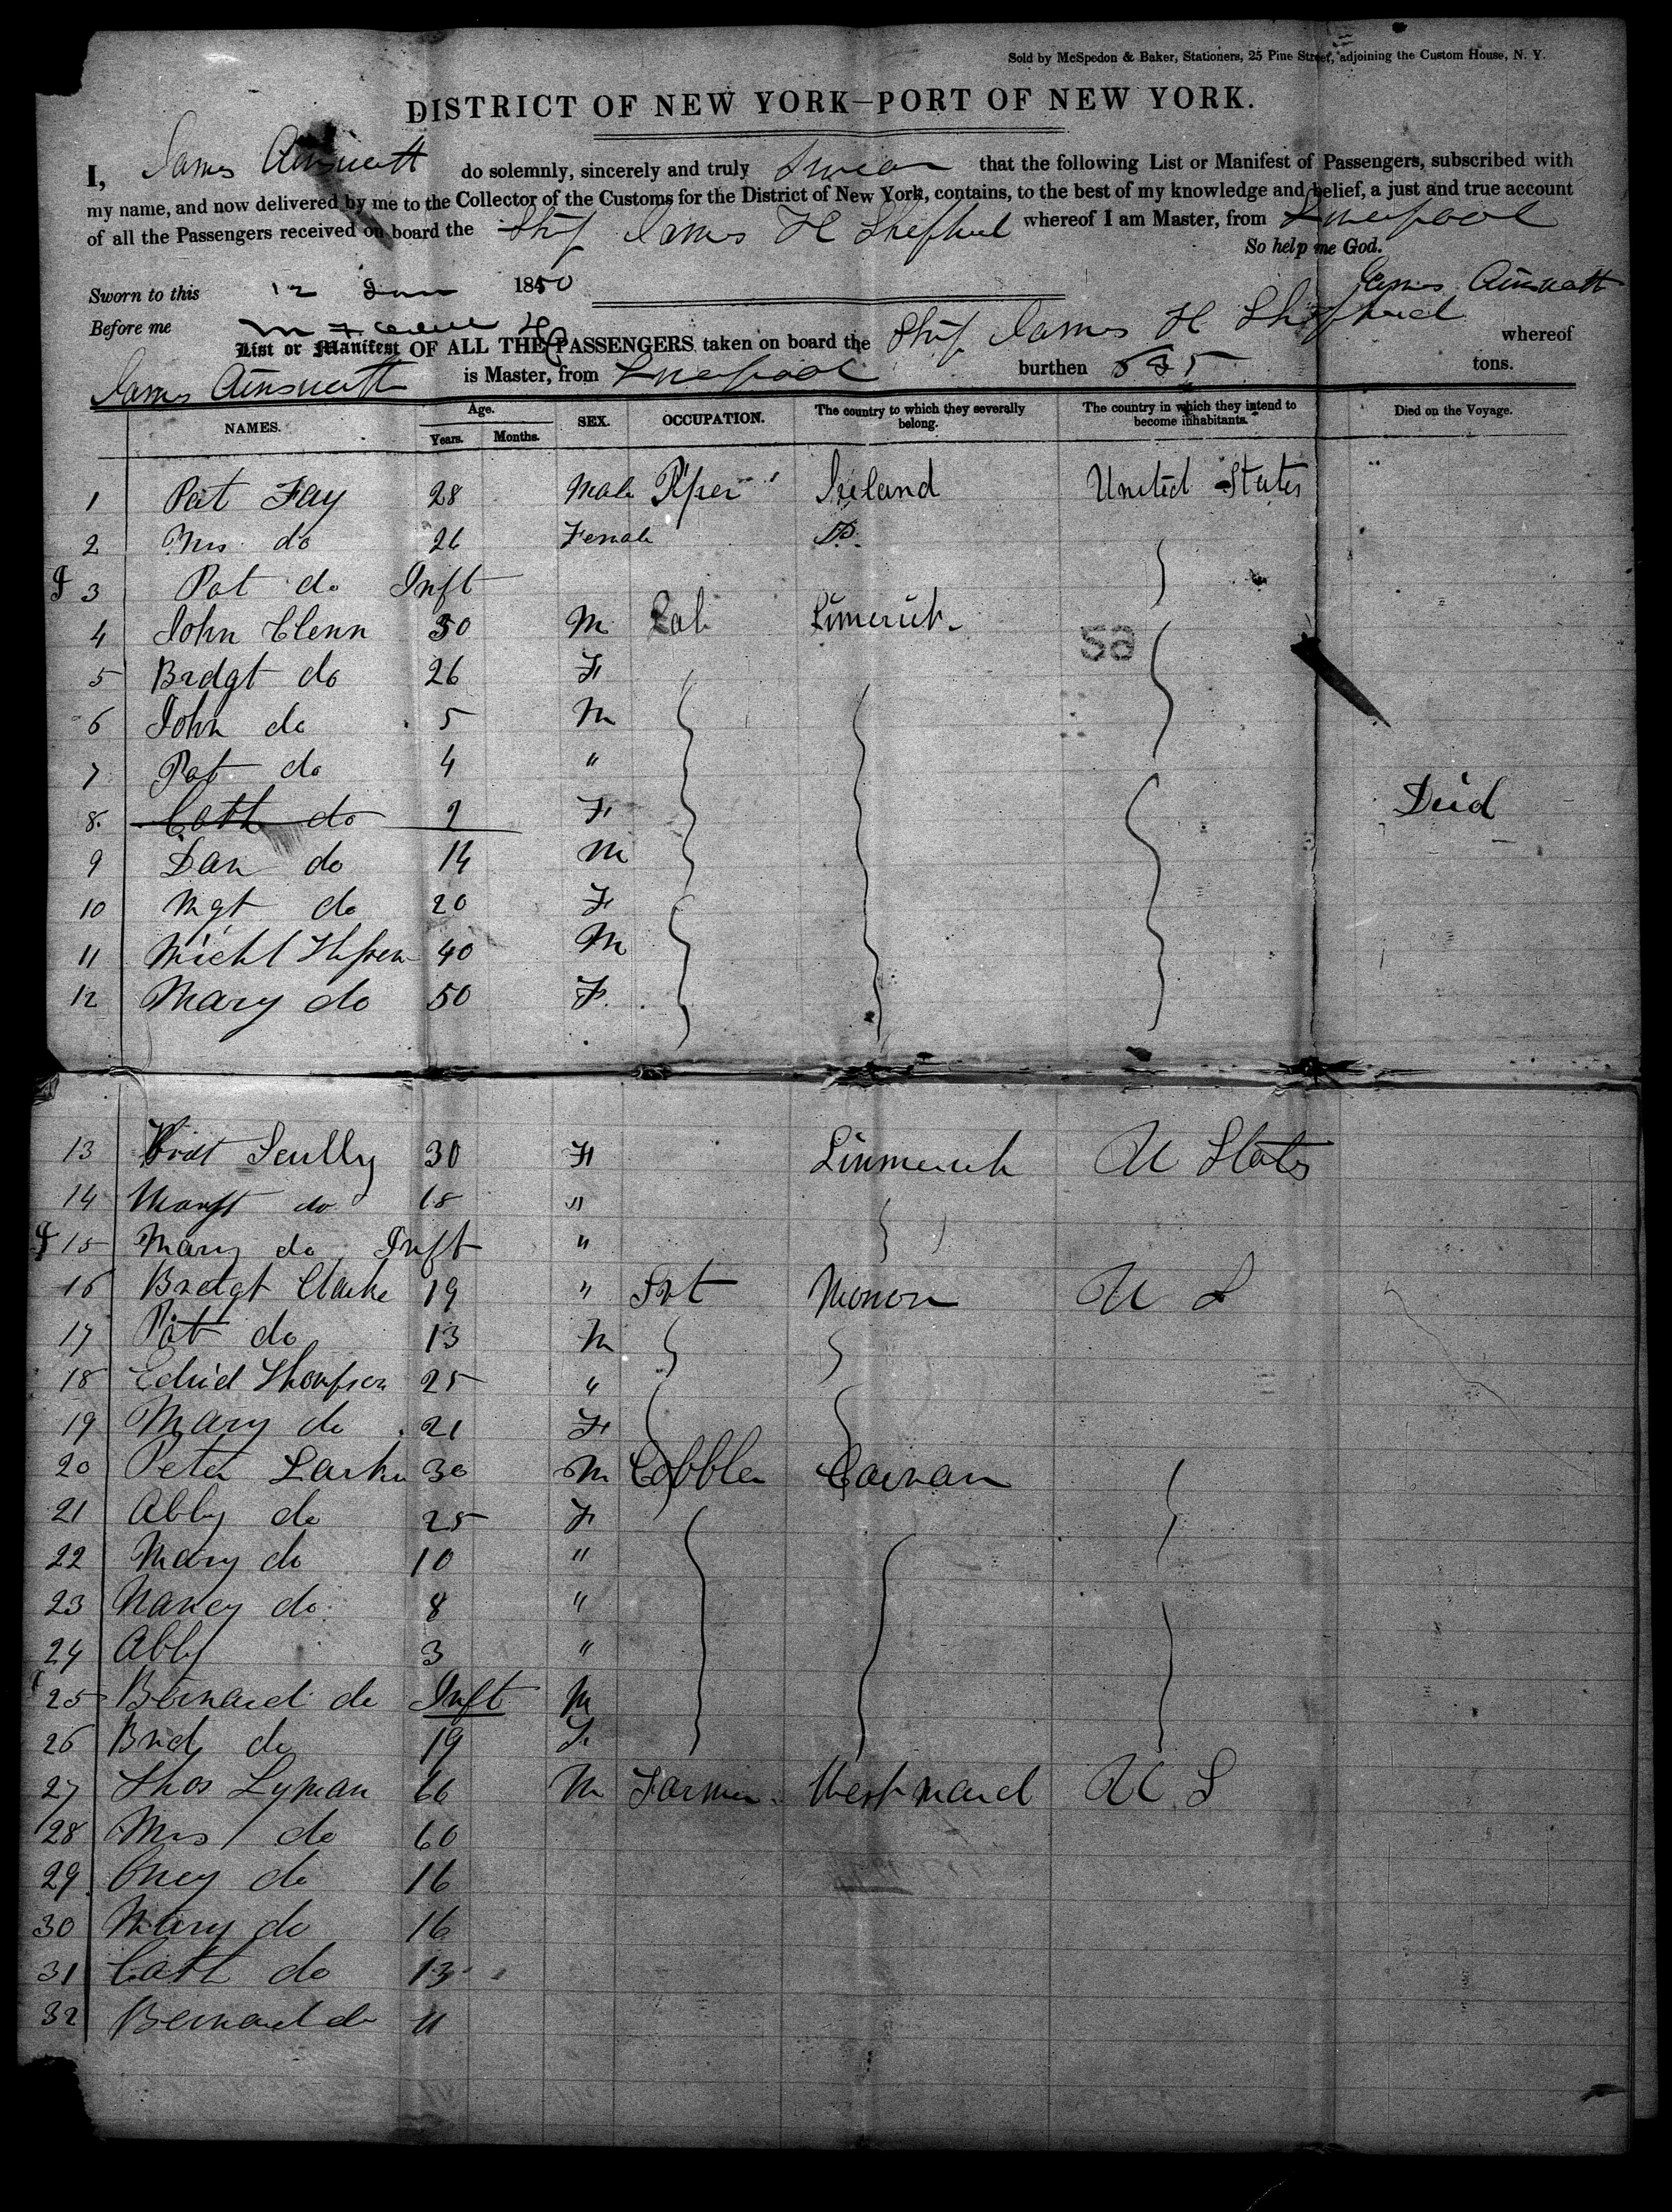 Sold by McSpedon & Baker, Stationers, 25 Pine Street, adjoining the Custom House, N. Y.
DISTRICT OF NEW YORK—PORT OF NEW YORK.
I, James Ainswatt do solemnly, sincerely and truly Swear that the following List or Manifest of Passengers, subscribed with
my name, and now delivered by me to the Collector of the Customs for the District of New York, contains, to the best of my knowledge and belief, a just and true account
of all the Passengers received on board the Ship James H Shepherd whereof I am Master, from Liverpool
So help me God.
Sworn to this 12 Jan 1850 James Ainswatt
Before me
List or Manifest OF ALL THE PASSENGERS taken on board the Ship James H Shepherd whereof
James Ainswatt is Master, from Liverpool burthen 635 tons.
NAMES. Age. Years. Months. SEX. OCCUPATION. The country to which they severally belong. The country in which they intend to become inhabitants. Died on the Voyage.
1 Pat Fay 28 Male Ireland United States
2 Mrs do 26 Female Do
3 Pat do Inft
4 John Glenn 30 M Lab Limerick
5 Brdgt do 26 F
6 John do 5 M
7 Pat do 4 "
8 Cath do 2 F Died
9 Dan do 14 M
10 Mgt do 20 F
11 Michl 40 M
12 Mary do 50 F
13 Bridt Scully 30 F Limerick U States
14 Margt do 18 "
15 Mary do Inft "
16 Bredgt Clarke 19 " Svt U S
17 Pat do 13 M
18 Edwd Thompson 25 "
19 Mary do 21 F
20 Peter Larkin 30 M Cobbler Cavan
21 Abby do 25 F
22 Mary do 10 "
23 Nancy do 8 "
24 Abby 3 "
25 Bernard do Inft M
26 Brid do 19 F
27 Thos Lyman 66 M Farmer Westmead U S
28 Mrs do 60
29 do 16
30 Mary do 16
31 Cath do 13
32 Bernard do 11